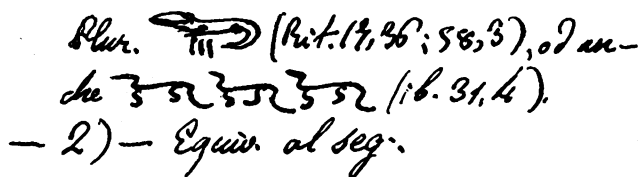 Plur. (Rit. 19, 36; 58, 3), od an-
che (ib. 31, 4).
— 2) — Equiv. al seg.